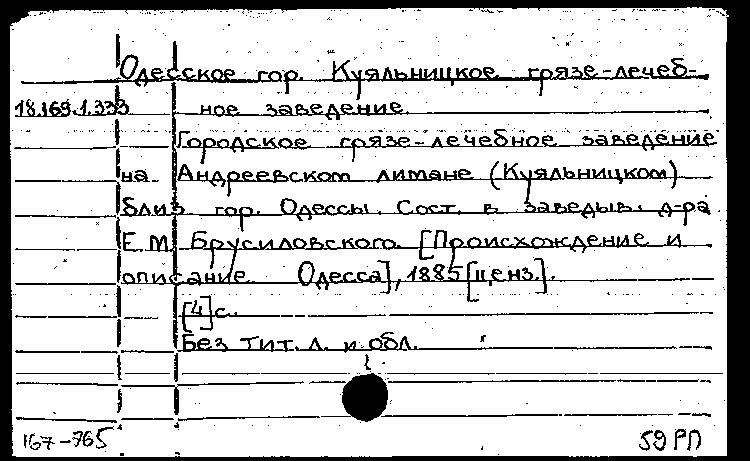 Одесское гор. Куяльницкое грязе-лечеб-
18.169.1.333 ное заведение.
Городское грязе-лечебное заведение
на Андреевском лимане (Куяльницком)
близ гор. Одессы. Сост. в заведыв. д-ра
Е.М. Брусиловского. [Происхождение и
описание. Одесса], 1885 [ценз.].
[4] с.
Без тит. л. и обл.
167-765 59 РП